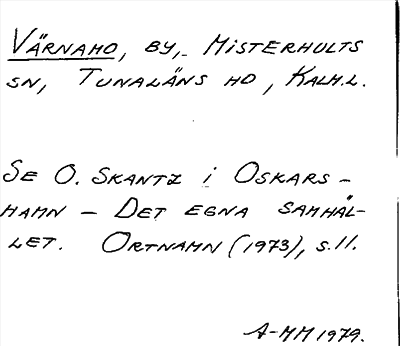 VÄRNAMO, BY, MISTERHULTS
SN, TUNALÄNS HD, KALM.L.
SE O. SKANTZ i OSKARS-
HAMN – DET EGNA SAMHÄL-
LET. ORTNAMN (1973), S.11.
A-MM 1979.